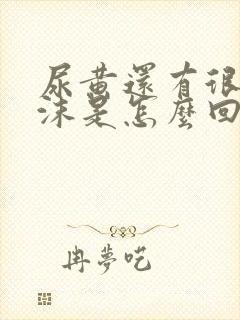 尿黄還有很
沫是怎麼回
冉夢吃